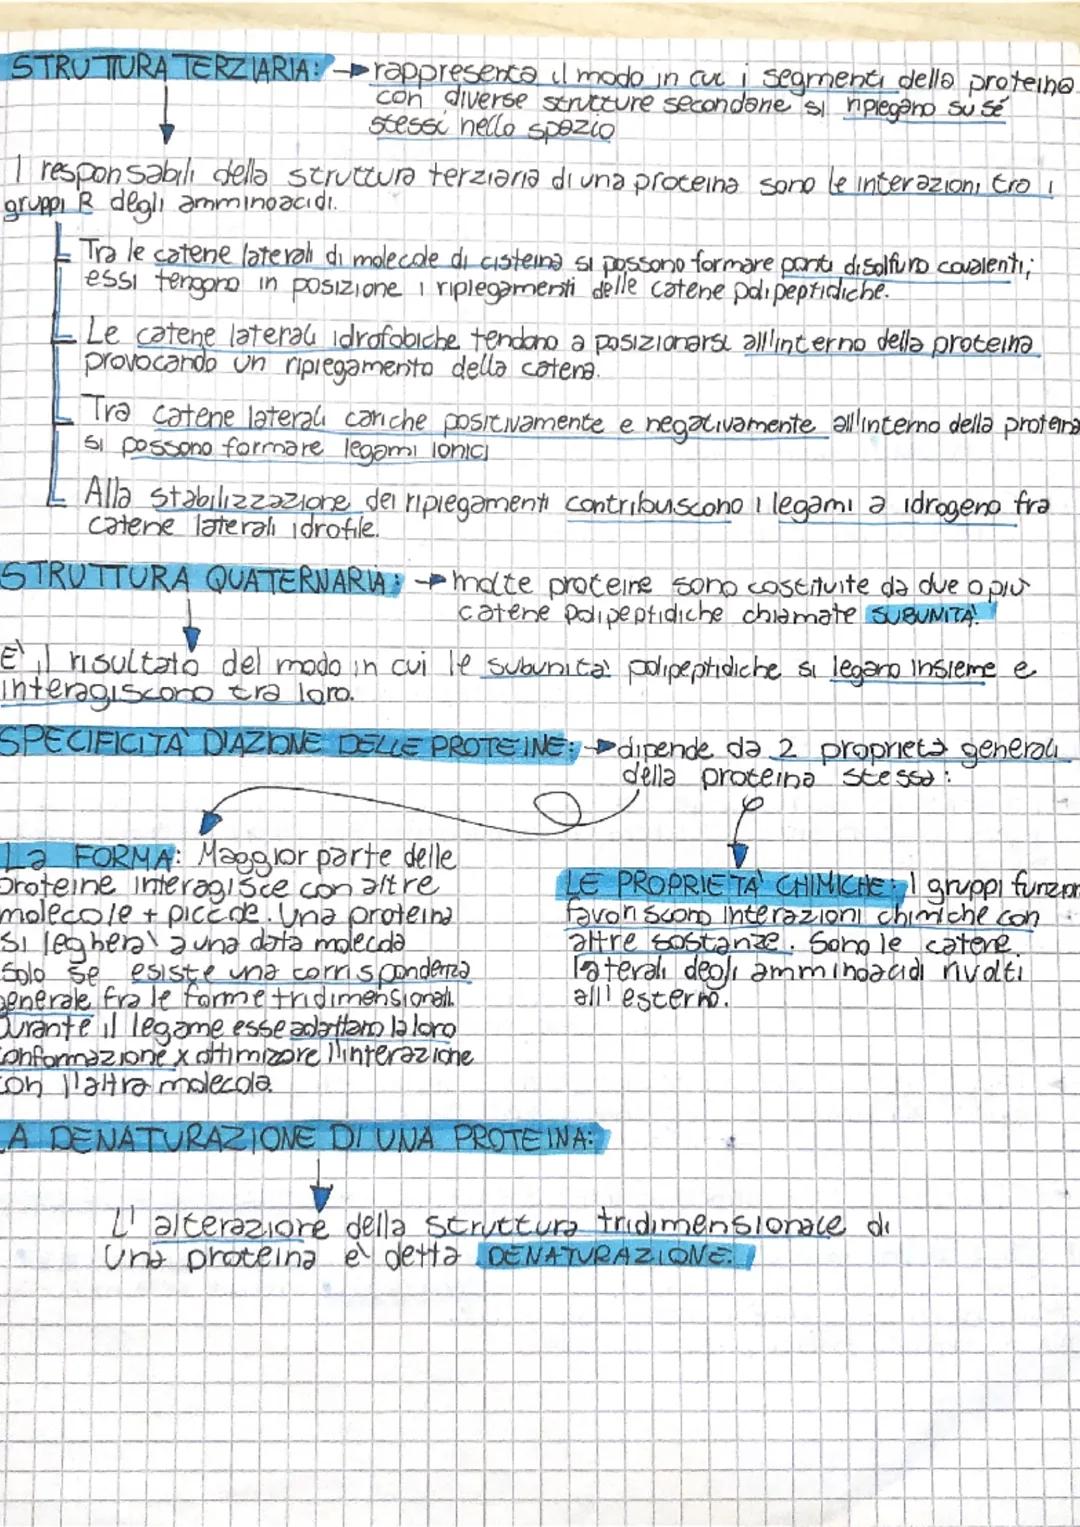 STRUTTURA TERZIARIA: → rappresenta il modo in cui i segmenti della proteina
con diverse strutture secondarie si ripiegano su sé
stessi nello spazio
I responsabili della struttura terziaria di una proteina sono le interazioni tra i
gruppi R degli amminoacidi.
Tra le catene laterali di molecole di cisteina si possono formare ponti disolfuro covalenti;
essi tengono in posizione i ripiegamenti delle catene polipeptidiche.
Le catene laterali idrofobiche tendono a posizionarsi all'interno della proteina
provocando un ripiegamento della catena.
Tra catene laterali cariche positivamente e negativamente all'interno della proteina
si possono formare legami ionici
Alla stabilizzazione dei ripiegamenti contribuiscono i legami a idrogeno fra
catene laterali idrofile.
STRUTTURA QUATERNARIA: → molte proteine sono costituite da due o più
catene polipeptidiche chiamate SUBUNITA'.
E' il risultato del modo in cui le subunita' polipeptidiche si legano insieme e
interagiscono tra loro.
SPECIFICITA' D'AZIONE DELLE PROTEINE: → dipende da 2 proprietà generali
della proteina stessa:
La FORMA: Maggior parte delle
proteine interagisce con altre
molecole + piccole. Una proteina
si legherà a una data molecola
solo se esiste una corrispondenza
generale fra le forme tridimensionali.
Durante il legame esse adattano la loro
conformazione x ottimizzare l'interazione
con l'altra molecola.
LE PROPRIETA' CHIMICHE: I gruppi funzion
favoriscono interazioni chimiche con
altre sostanze. Sono le catene
laterali degli amminoacidi rivolti
all'esterno.
LA DENATURAZIONE DI UNA PROTEINA:
L'alterazione della struttura tridimensionale di
una proteina è detta DENATURAZIONE.